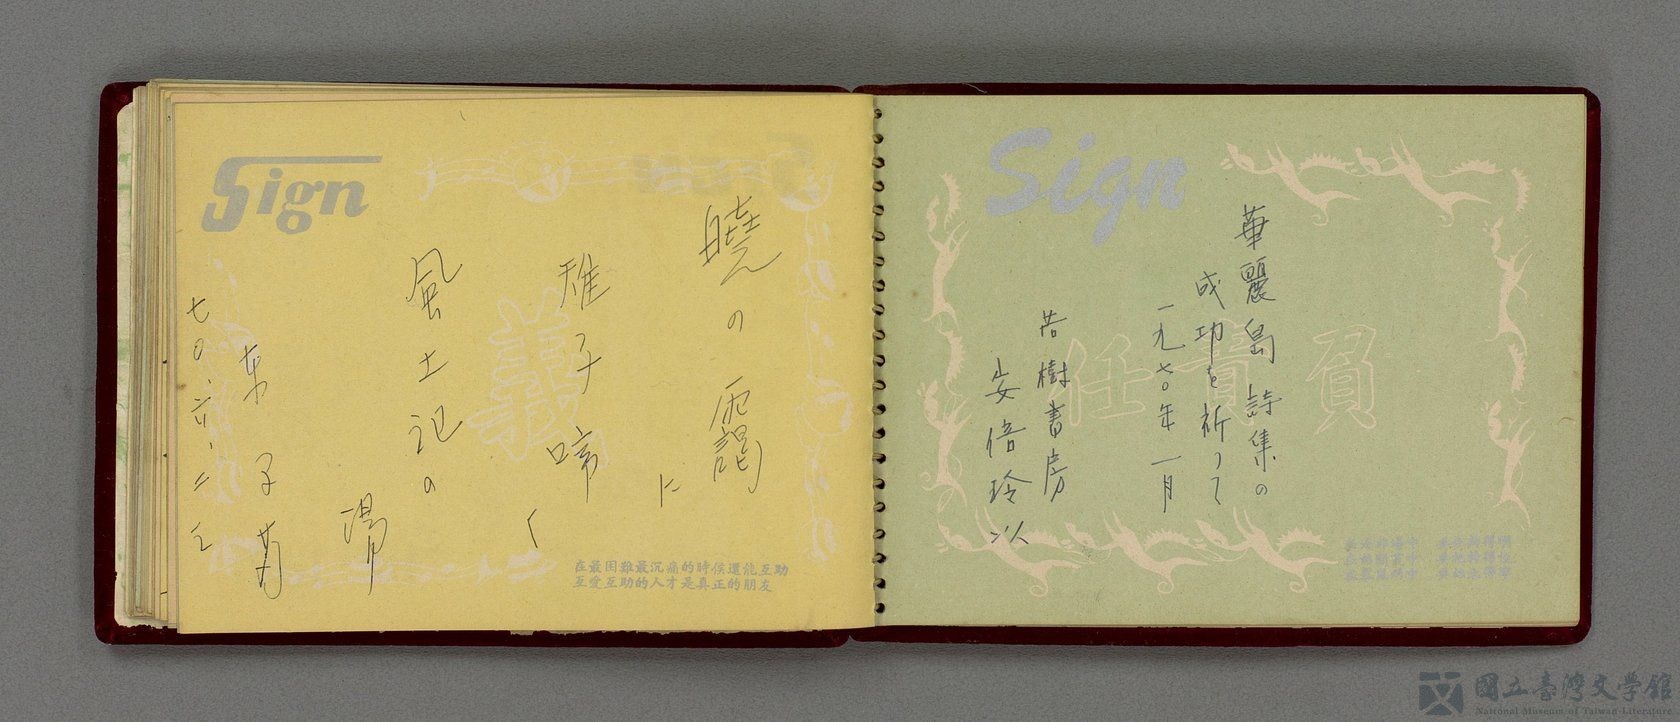 Sign
負責任
華麗島詩集の
成功を祈って
一九七〇年一月
若樹書房
安倍玲以
Sign
義
曉の靄に
雉子啼く
風土記の
湯
七〇、六、二
在最困難最沉痛的時侯還能互助
互愛互助的人才是真正的朋友
國立臺灣文學館
National Museum of Taiwan Literature